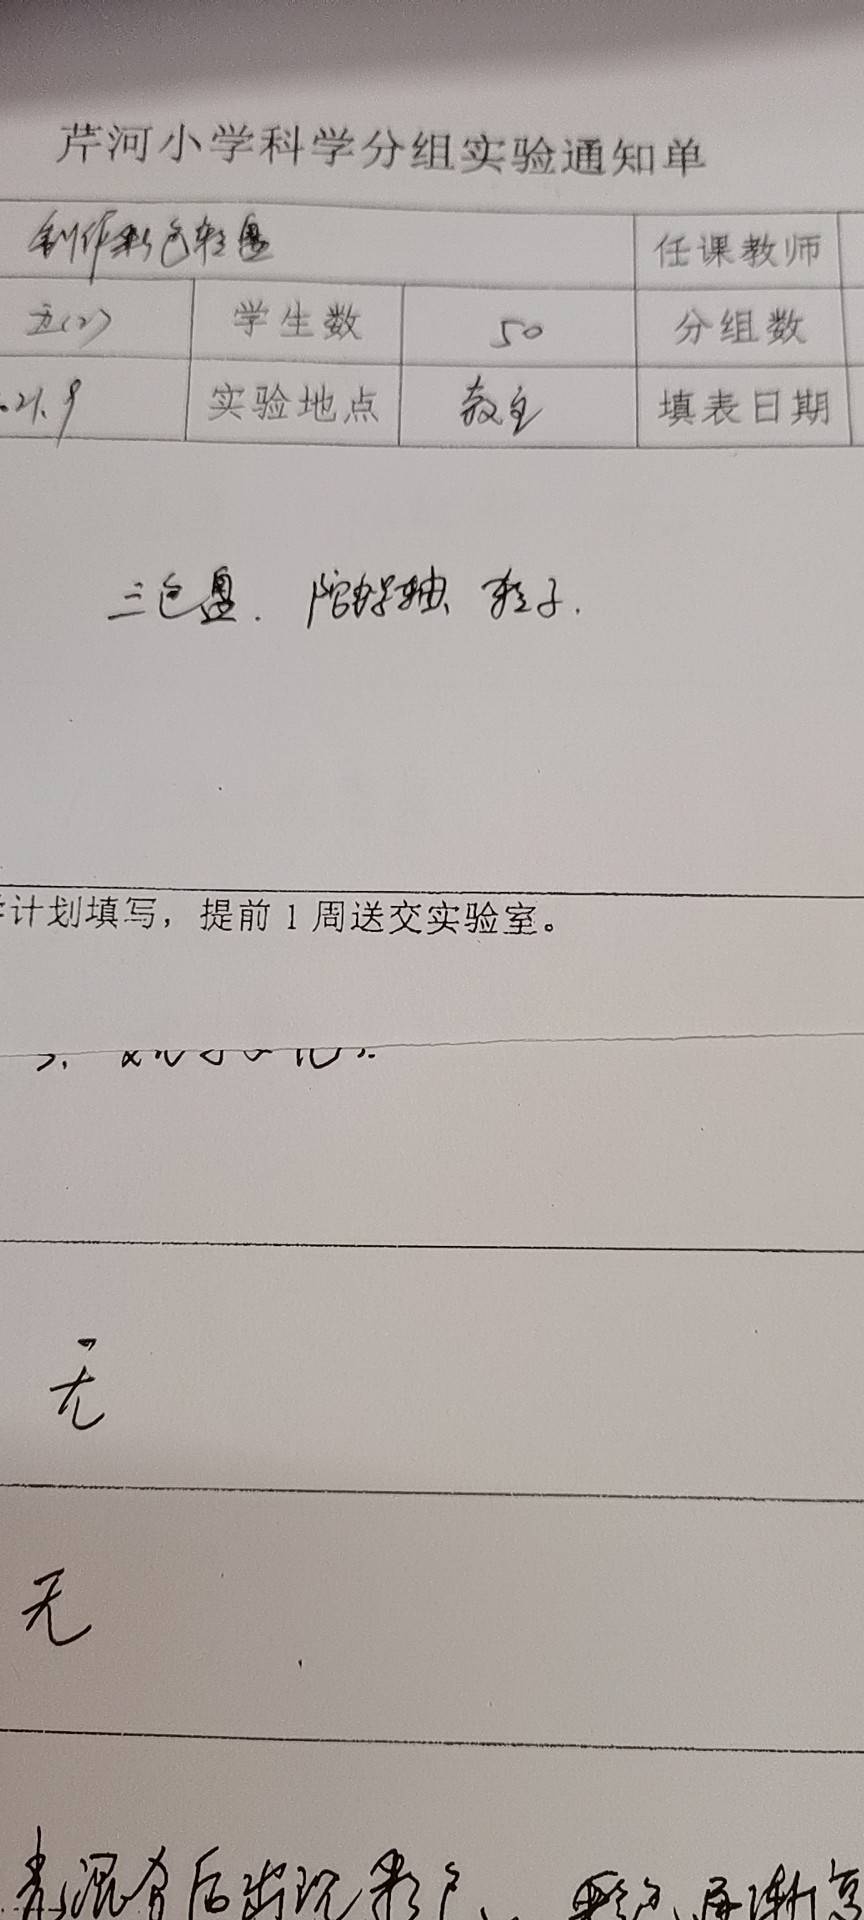 芹河小学科学分组实验通知单
制作彩色轮盘 任课教师
五(2) 学生数 50 分组数
.21.9 实验地点 教室 填表日期
三色盘. 陀螺轴、轮子.
计划填写，提前1周送交实验室。
无
无
混合后出现彩色、